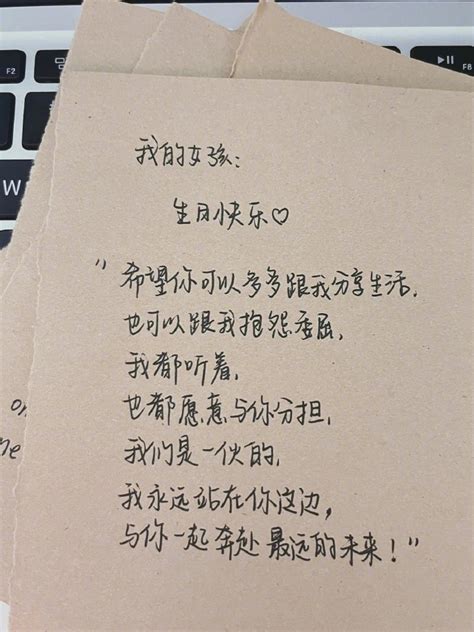 F2
F8
W
我的女孩：
生日快乐♡
"希望你可以多多跟我分享生活，
也可以跟我抱怨委屈，
我都听着，
也都愿意与你分担，
我们是一伙的，
我永远站在你这边，
与你一起奔赴最远的未来！"